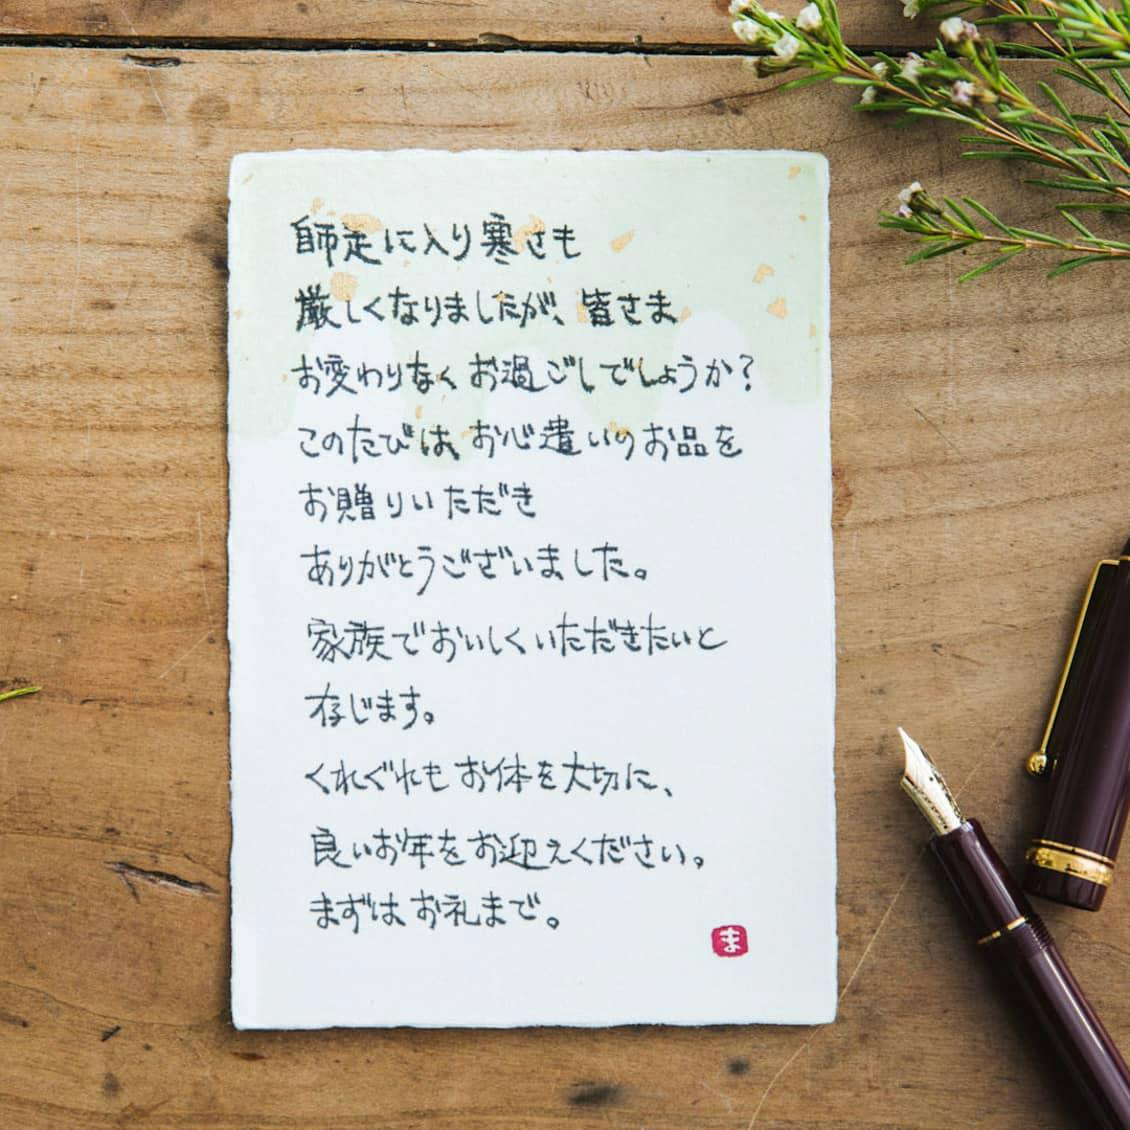 師走に入り寒さも
厳しくなりましたが、皆さま
お変わりなくお過ごしでしょうか？
このたびは、お心遣いのお品を
お贈りいただき
ありがとうございました。
家族でおいしくいただきたいと
存じます。
くれぐれもお体を大切に、
良いお年をお迎えください。
まずはお礼まで。
ま